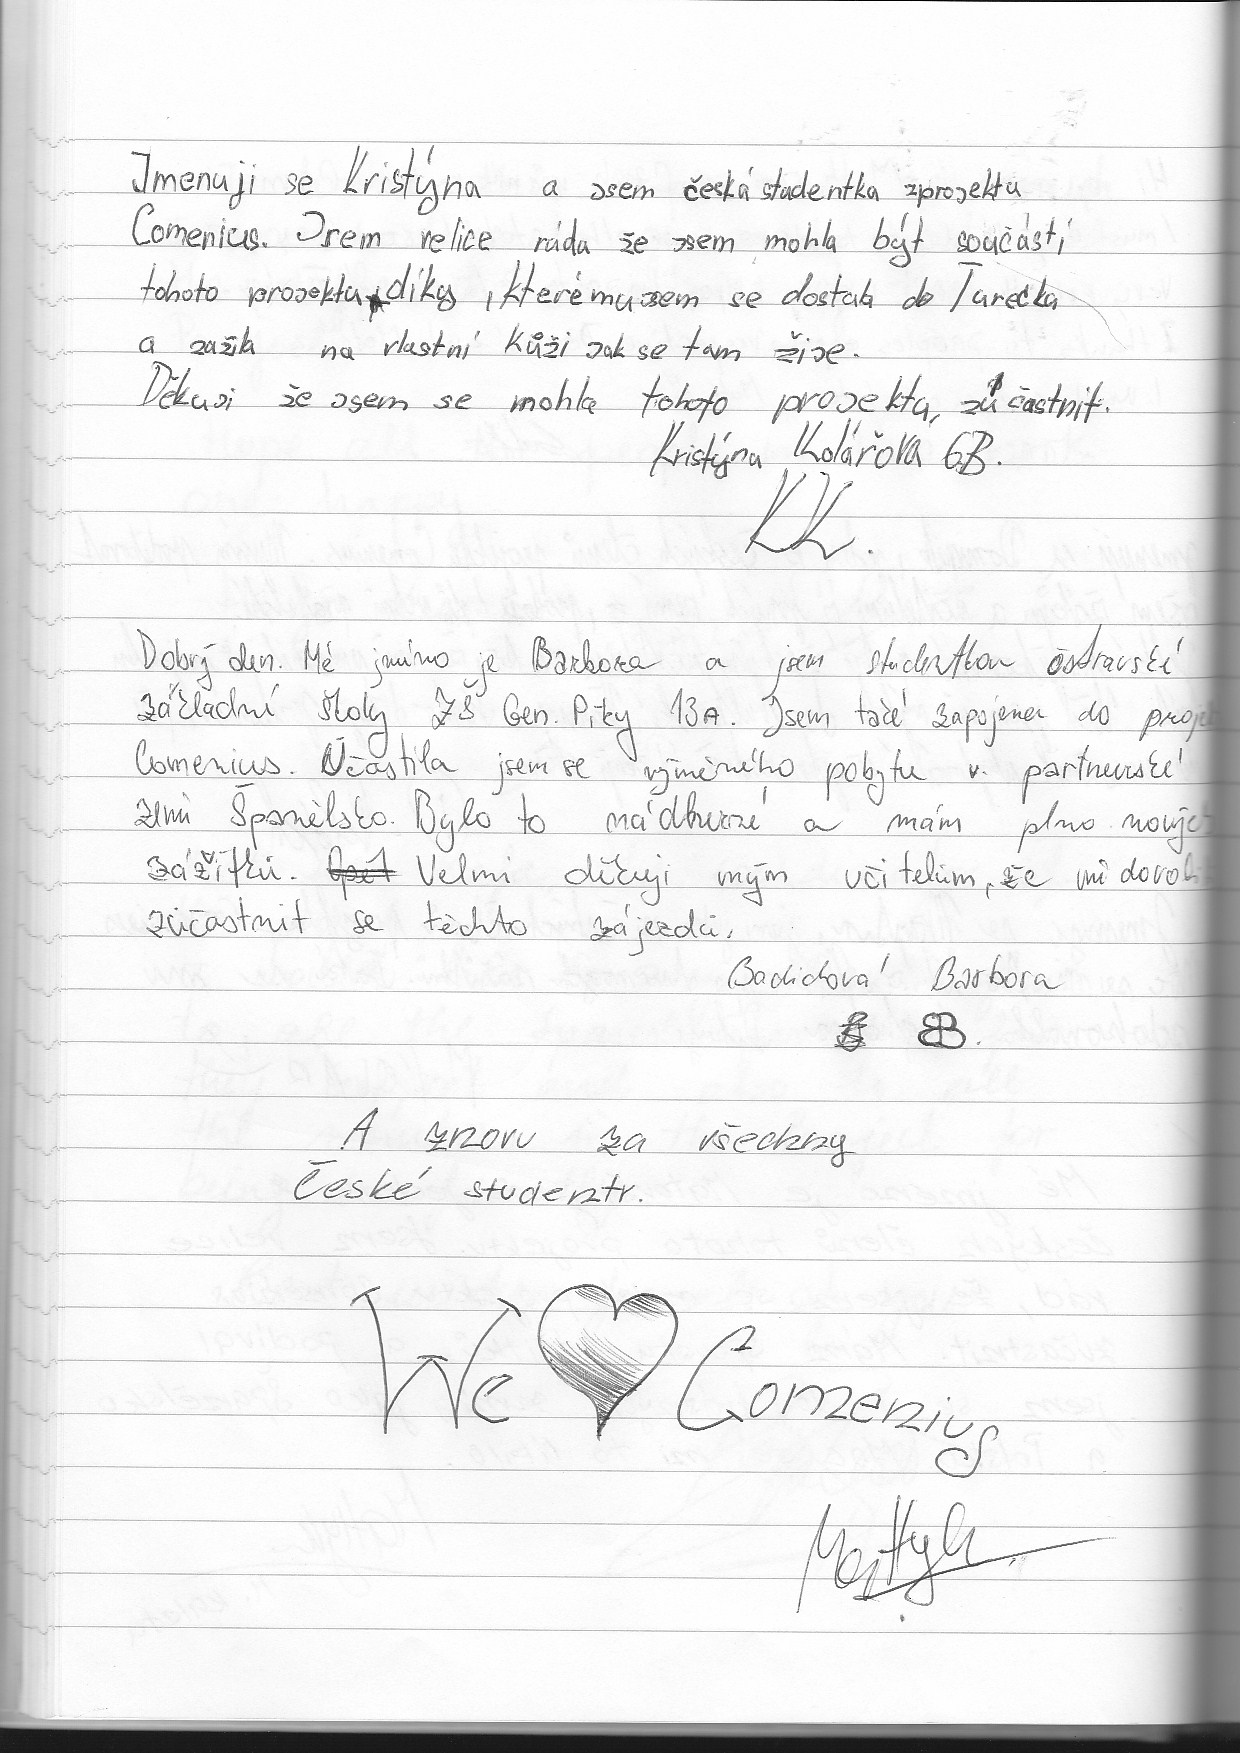 Jmenuji se Kristýna a jsem česká studentka zprojektu
Comenius. Jsem velice ráda že jsem mohla být součástí
tohoto projektu, díky, kterému jsem se dostala do Turecka
a zažila na vlastní kůži jak se tam žije.
Děkuji že jsem se mohla tohoto projektu, zůčastnit.
Kristýna Kolářová 6B.
KK.
Dobrý den. Mé jméno je Barbora a jsem studentkou ostravské
základní školy ZŠ Gen. Píky 13A. Jsem také zapojena do proje
Comenius. Účastila jsem se výměného pobytu v partnerské
zemi Španělsko. Bylo to nádherné a mám plno nových
zážitků. Velmi děkuji mým učitelům, že mi dovoli
zůčastnit se těchto zájezdů.
Badidová Barbora
BB.
A znovu za všechny
České studenty.
We ♥ Comenius